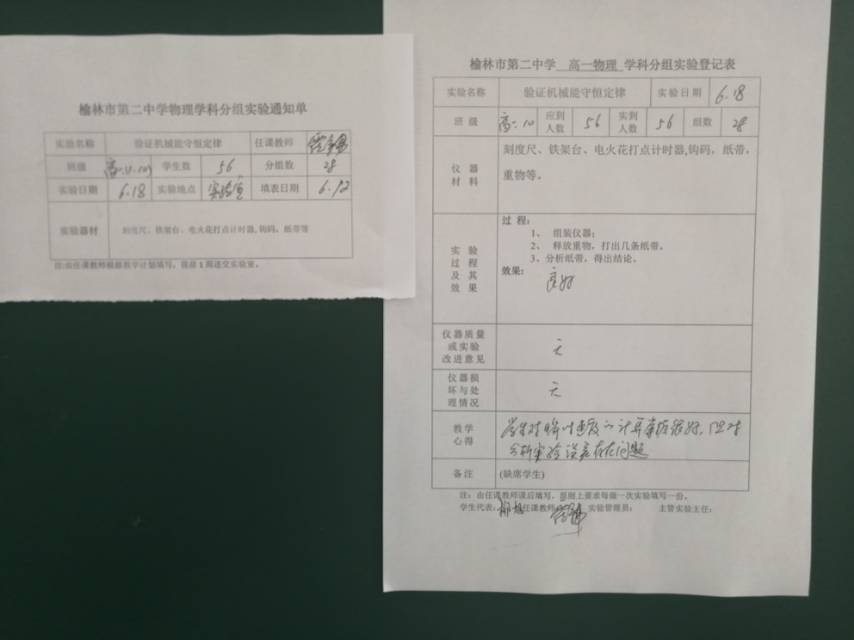 榆林市第二中学物理学科分组实验通知单
实验名称 验证机械能守恒定律 任课教师
班级 学生数 56 分组数 28
实验日期 6.18 实验地点 实验室 填表日期 6.12
实验器材 刻度尺、铁架台、电火花打点计时器,钩码、纸带等
注:由任课教师根据教学计划填写，提前1周送交实验室。
榆林市第二中学 高一物理 学科分组实验登记表
实验名称 验证机械能守恒定律 实验日期 6.18
班级 高一.10 应到人数 56 实到人数 56 组数 28
仪器材料 刻度尺、铁架台、电火花打点计时器,钩码，纸带，
重物等。
实验过程及其效果
过程：
1、 组装仪器；
2、 释放重物，打出几条纸带。
3、分析纸带，得出结论。
效果：
良好
仪器质量或实验改进意见 无
仪器损坏与处理情况 无
教学心得 学生对瞬时速度的计算掌握较好，但对
分析实验误差存在问题
备注 (缺席学生)
注：由任课教师课后填写，原则上要求每做一次实验填写一份。
学生代表： 任课教师： 实验管理员： 主管实验主任：